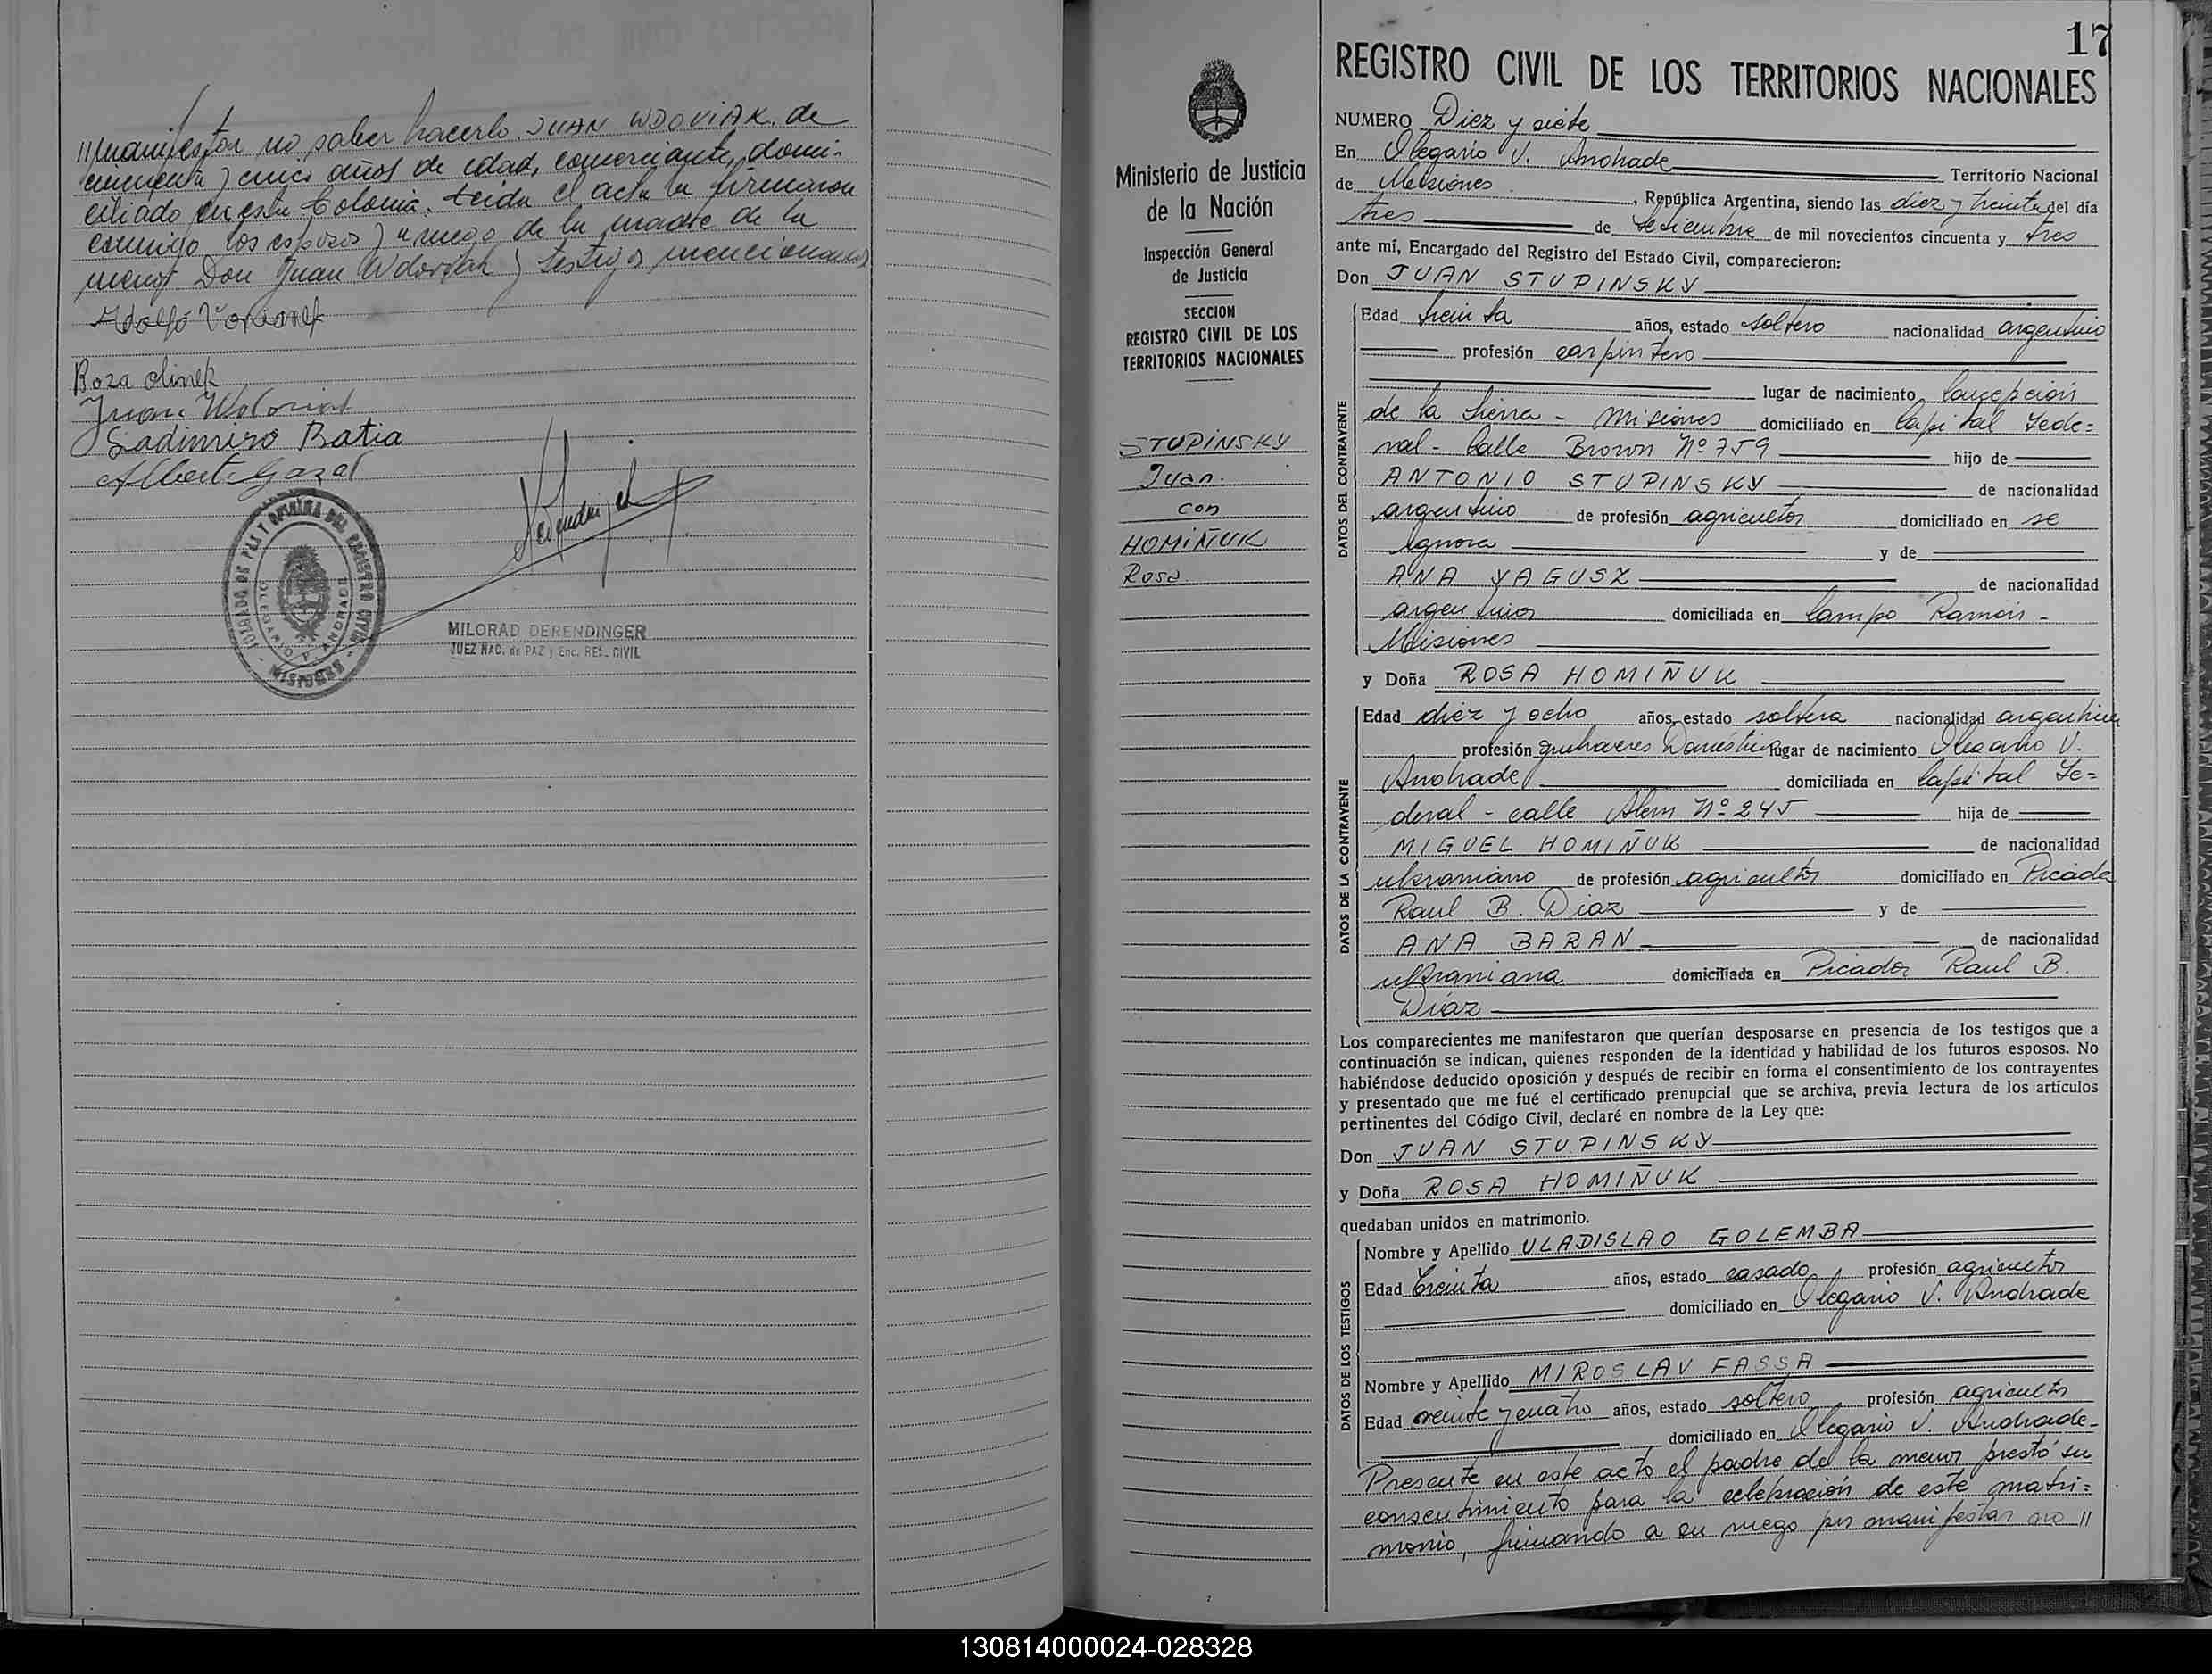 // manifestar no saber hacerlo. JUAN WDOVIAK. de
cincuenta y cinco años de edad, comerciante, domi-
ciliado en esta Colonia. Leida el acta la firmaron
conmigo los esposos y a ruego de la madre de la
menor Don Juan Wdoviak y testigos mencionados
Adolfo
Roza Olinek
Juan Wdoviak
Ladimiro Batia
Albert Gazal
JUZGADO DE PAZ Y OFICINA DEL REGISTRO CIVIL
OLEGARIO V. ANDRADE
- MISIONES -
MILORAD DERENDINGER
JUEZ NAC. de PAZ y Enc. REG. CIVIL
Ministerio de Justicia
de la Nación
Inspección General
de Justicia
SECCION
REGISTRO CIVIL DE LOS
TERRITORIOS NACIONALES
STUPINSKY
Juan.
con
HOMIÑUK
Rosa
17
REGISTRO CIVIL DE LOS TERRITORIOS NACIONALES
NUMERO Diez y siete
En Olegario V. Andrade Territorio Nacional
de Misiones, República Argentina, siendo las diez y treinta del día
tres de Setiembre de mil novecientos cincuenta y tres
ante mí, Encargado del Registro del Estado Civil, comparecieron:
Don JUAN STUPINSKY
DATOS DEL CONTRAYENTE
Edad treinta años, estado soltero nacionalidad argentino
profesión carpintero
lugar de nacimiento Concepción
de la Sierra - Misiones domiciliado en Capital Fede=
ral - Calle Brown Nº 759 hijo de
ANTONIO STUPINSKY de nacionalidad
argentino de profesión agricultor domiciliado en se
ignora y de
ANA YAGUSZ de nacionalidad
argentina domiciliada en Campo Ramón -
Misiones
y Doña ROSA HOMIÑUK
DATOS DE LA CONTRAYENTE
Edad diez y ocho años, estado soltera nacionalidad argentina
profesión quehaceres Domésticos lugar de nacimiento Olegario V.
Andrade domiciliada en Capital Fe=
deral - calle Alem Nº 245 hija de
MIGUEL HOMIÑUK de nacionalidad
ukraniano de profesión agricultor domiciliado en Picada
Raul B. Diaz y de
ANA BARAN de nacionalidad
ukraniana domiciliada en Picada Raul B.
Diaz
Los comparecientes me manifestaron que querían desposarse en presencia de los testigos que a
continuación se indican, quienes responden de la identidad y habilidad de los futuros esposos. No
habiéndose deducido oposición y después de recibir en forma el consentimiento de los contrayentes
y presentado que me fué el certificado prenupcial que se archiva, previa lectura de los artículos
pertinentes del Código Civil, declaré en nombre de la Ley que:
Don JUAN STUPINSKY
y Doña ROSA HOMIÑUK
quedaban unidos en matrimonio.
DATOS DE LOS TESTIGOS
Nombre y Apellido VLADISLAO GOLEMBA
Edad treinta años, estado casado profesión agricultor
domiciliado en Olegario V. Andrade
Nombre y Apellido MIROSLAV FASSA
Edad veinte y cuatro años, estado soltero profesión agricultor
domiciliado en Olegario V. Andrade -
Presente en este acto el padre de la menor prestó su
consentimiento para la celebración de este matri=
monio, firmando a su ruego por manifestar no //
130814000024-028328